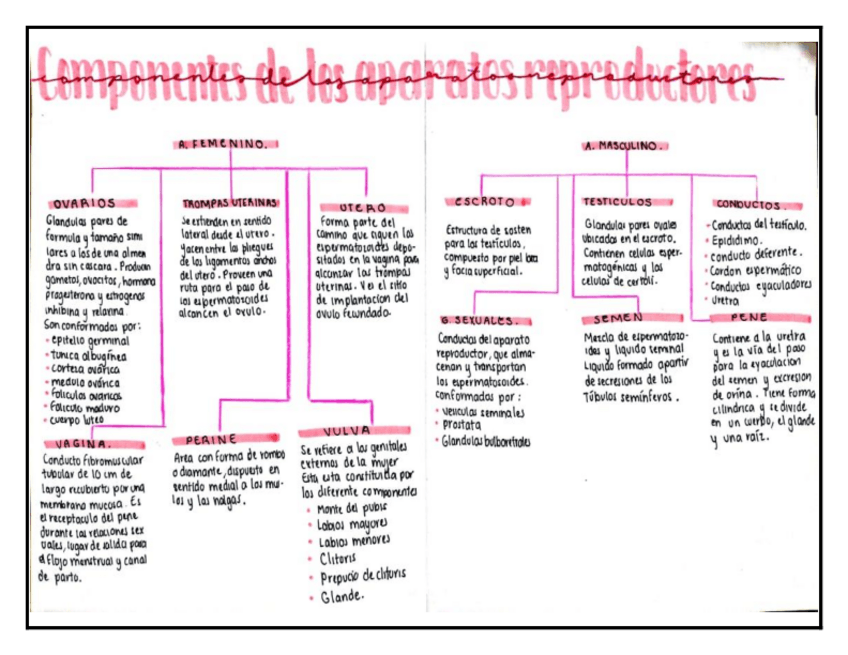 Componentes de los aparatos reproductores
componentes de los aparatos reproductores
A. FEMENINO.
OVARIOS
Glandulas pares de
formula y tamaño simi
lares a los de una almen
dra sin cascara. Producen
gametos, ovocitos, hormona
progesterona y estrogenos
inhibina y relaxina.
Son conformados por:
• epitelio germinal
• tunica albugínea
• corteza ovárica
• medula ovárica
• foliculos ovaricos
• Foliculo maduro
• cuerpo luteo
TROMPAS UTERINAS
Se extienden en sentido
lateral desde el utero.
Yacen entre los pliegues
de los ligamentos anchos
del utero. Proveen una
ruta para el paso de
los espermatosoides
alcancen el ovulo.
UTERO
Forma parte del
camino que siguen los
espermatozoides depo-
sitados en la vagina para
alcanzar las trompas
uterinas. Ves el sitio
de implantacion del
ovulo fecundado.
VAGINA.
Conducto fibromuscular
tubular de 10 cm de
largo recubierto por una
membrana mucosa. Es
el receptaculo del pene
durante las relaciones sex
uales, lugar de salida para
el flujo menstrual y canal
de parto.
PERINE
Area con forma de rombo
o diamante, dispuesto en
sentido medial a los mus-
los y las nalgas.
VULVA
Se refiere a los genitales
externos de la mujer
Esta esta constituida por
los diferente componentes
• Monte del pubis
• Labios mayores
• Labios menores
• Clitoris
• Prepucio de clitoris
• Glande.
A. MASCULINO.
ESCROTO
Estructura de sosten
para los testículos,
compuesto por piel laxa
y facia superficial.
TESTICULOS
Glandulas pares ovales
ubicadas en el escroto.
Contienen celulas esper-
matogénicas y las
celulas de certoli.
CONDUCTOS.
• Conductos del testículo.
• Epididimo.
• conducto deferente.
• Cordon espermático
• Conductos eyaculadores
• uretra
G. SEXUALES.
Conductos del aparato
reproductor, que alma-
cenan y transportan
los espermatosoides.
conformadas por:
• vesiculas seminales
• Prostata
• Glandulas bulboretrales
SEMEN
Mezcla de espermatozo-
ides y liquido seminal
Liquido formado apartir
de secresiones de los
Túbulos semínferos.
PENE
Contiene a la uretra
y es la vía del paso
para la eyaculacion
del semen y excresion
de orina. Tiene forma
cilindrica y se divide
en un cuerpo, el glande
y una raíz.